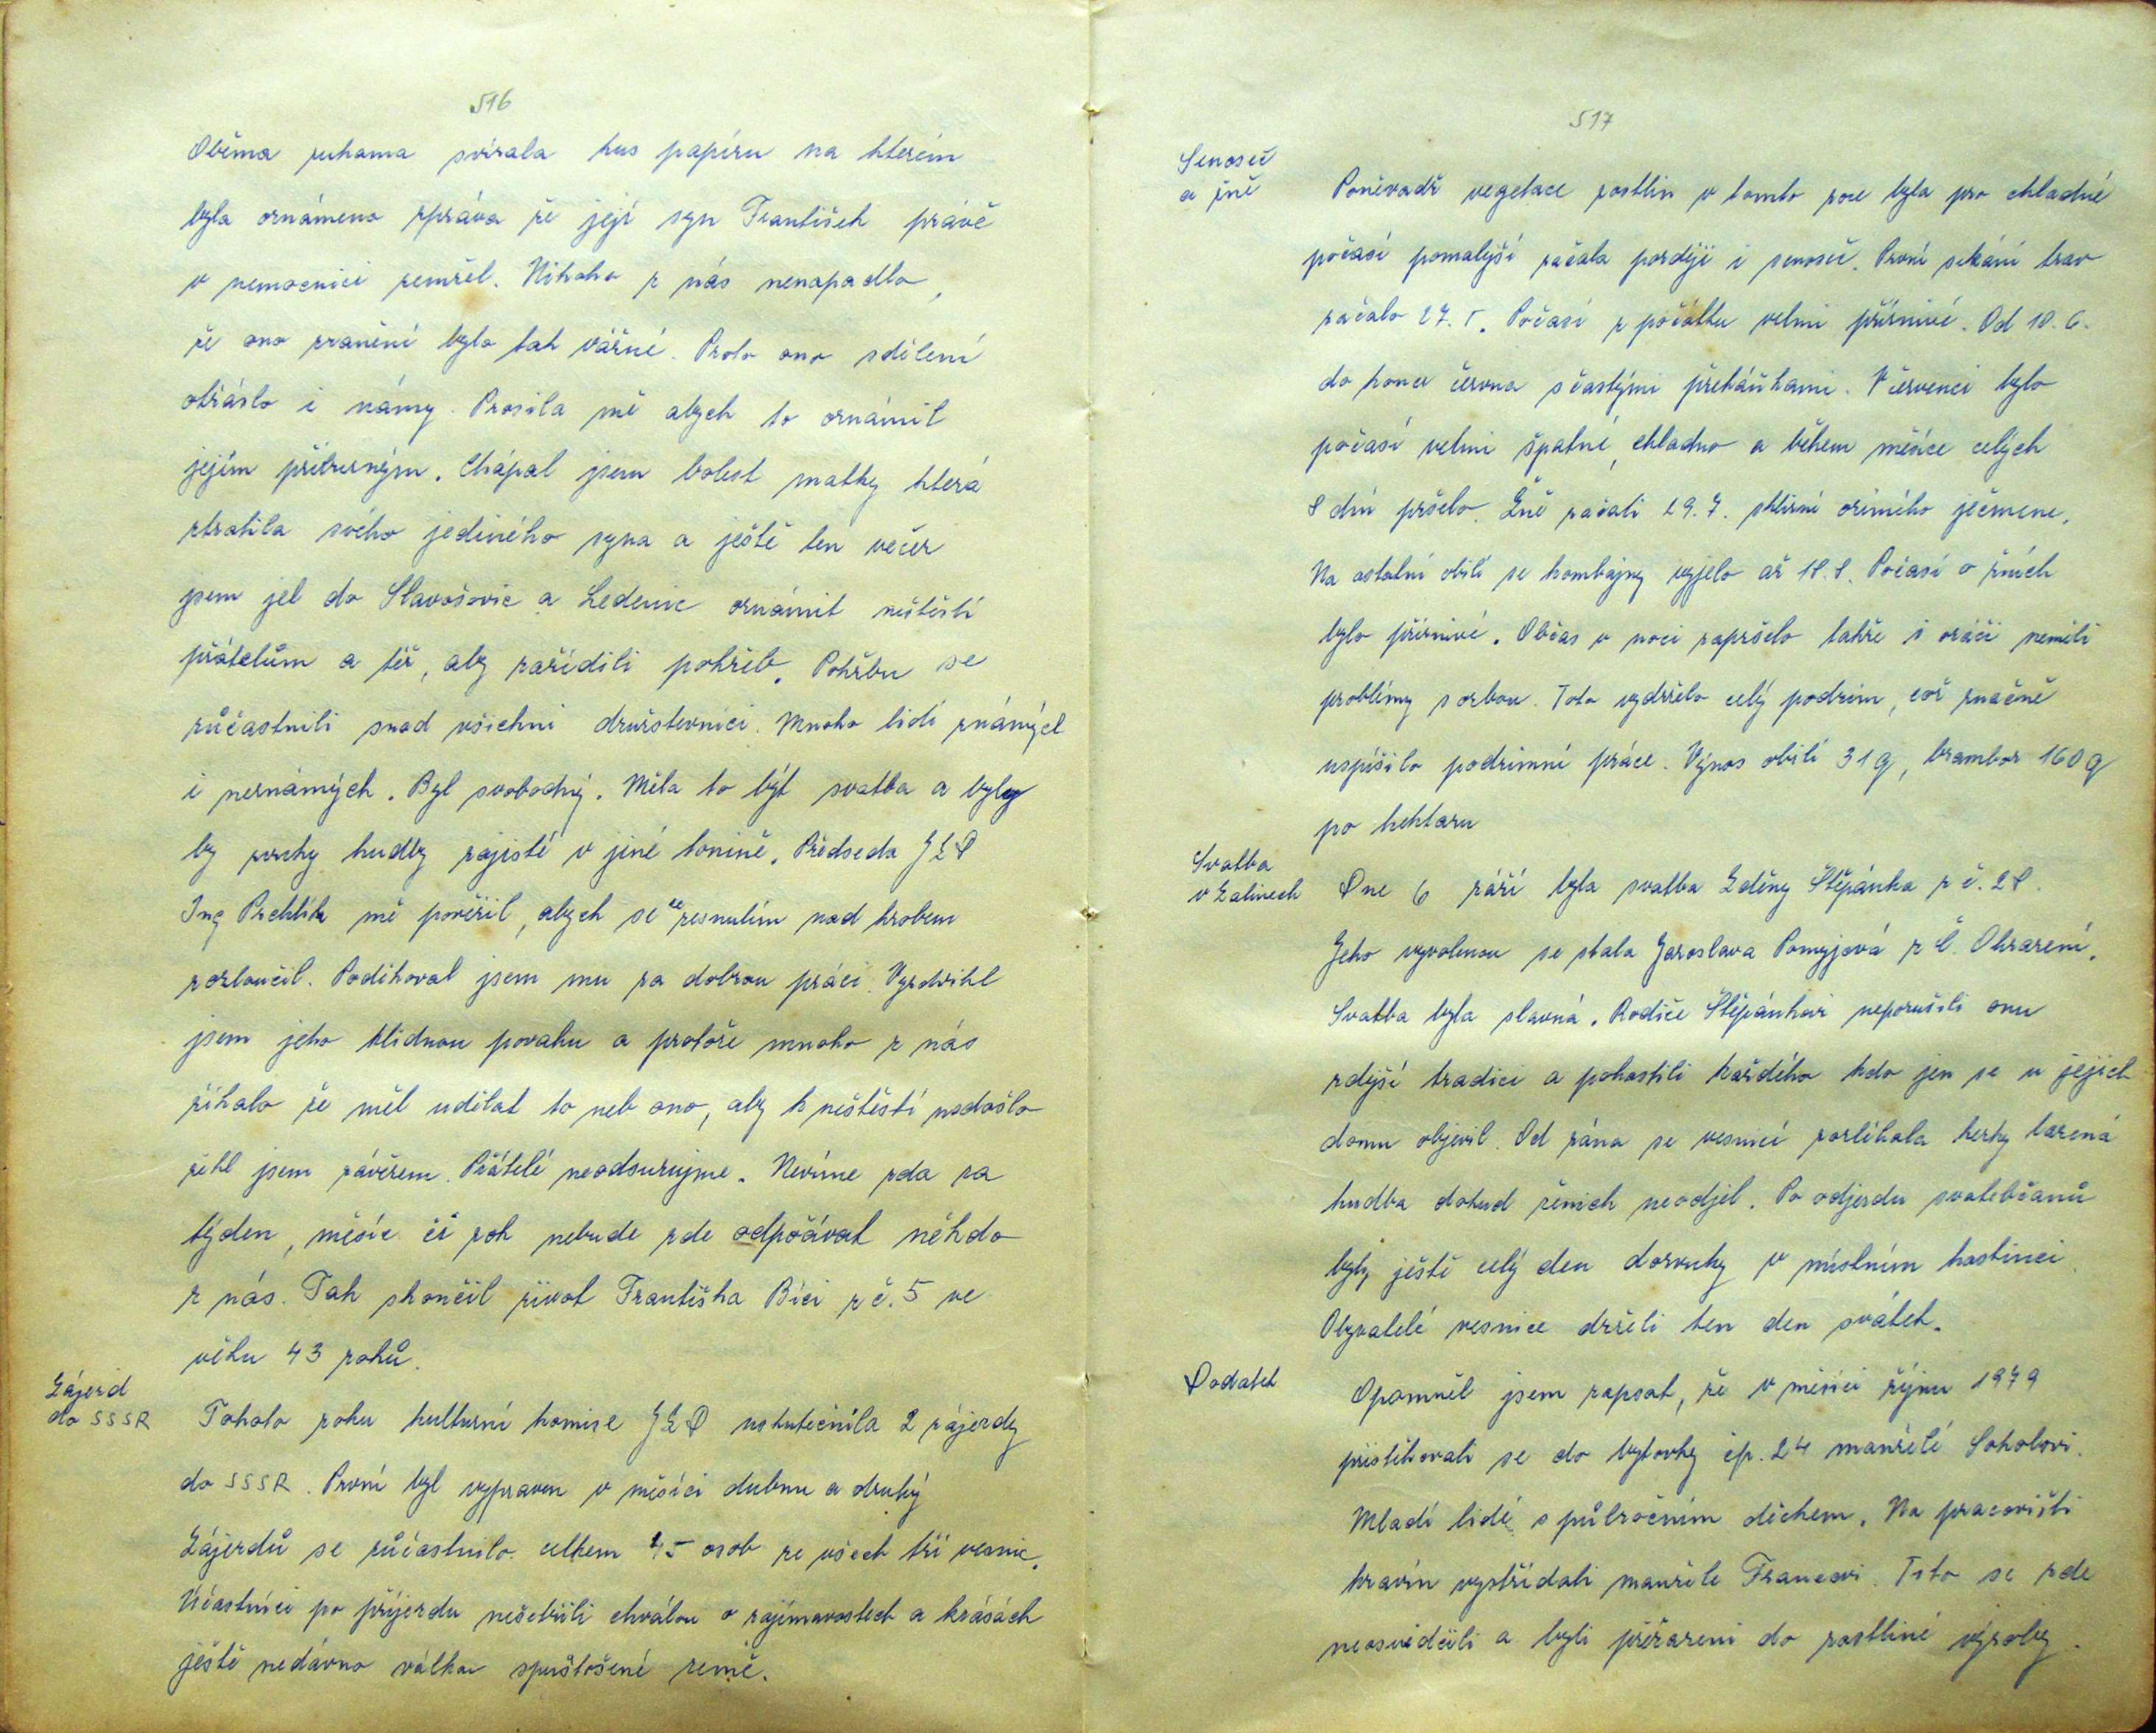 516
Oběma rukama svírala kus papíru na kterém
byla oznámena zpráva že její syn František právě
v nemocnici zemřel. Nikoho z nás nenapadlo,
že ono zranění bylo tak vážné. Proto ono sdělení
otřáslo i námy. Prosila mě abych to oznámil
jejím příbuzným. Chápal jsem bolest matky která
ztratila svého jediného syna a ještě ten večer
jsem jel do Slavošovic a Ledenic oznámit neštěstí
přátelům a též, aby zařídili pohřeb. Pohřbu se
zůčastnili snad všichni družstevníci. Mnoho lidí známých
i neznámých. Byl svobodný. Měla to být svatba a byly
by zvuky hudby zajisté v jiné tonině. Předseda JZD
Ing Prchlík mě pověřil, abych se ze zesnulím nad hrobem
rozloučil. Poděkoval jsem mu za dobrou práci. Vyzdvihl
jsem jeho klidnou povahu a protože mnoho z nás
říkalo že měl udělat to neb ono, aby k neštěstí nedošlo
řekl jsem závěrem. Přátelé neodsuzujme. Nevíme zda za
týden, měsíc či rok nebude zde odpočávat někdo
z nás. Tak skončil život Františka Bíci z č. 5 ve
věku 43 roků.
Zájezd
do SSSR
Tohoto roku kulturní komise JZD uskutečnila 2 zájezdy
do SSSR. První byl vypraven v měsíci dubnu a druhý
Zájezdů se zůčastnilo celkem 45 osob ze všech tří vesnic.
Účastníci po příjezdu nešetřili chválou o zajímavostech a krásách
ještě nedávno válkou spustošené země.
517
Senoseč
a žně
Poněvadž vegetace rostlin v tomto roce byla pro chladné
počasí pomalejší začala později i senoseč. První sekání trav
začalo 27. 5. Počasí z počátku velmi příznivé. Od 10. 6.
do konce června sčastými přeháňkami. Včervenci bylo
počasí velmi špatné, chladno a během měsíce celých
8 dní pršelo. Žně začali 29. 7. sklizní ozimého ječmene.
Na ostatní obilí se kombajny vyjelo až 18. 8. Počasí o žních
bylo příznivé. Občas v noci zapršelo takže i oráči neměli
problémy s orbou. Toto vydrželo celý podzim, což značně
uspíšilo podzimní práce. Výnos obilí 31 q, brambor 160 q
po hektaru
Svatba
v Zalinech
Dne 6 září byla svatba Zděny Štěpánka z č. 28.
Jeho vyvolenou se stala Jaroslava Pomyjová z Č. Ohrazení.
Svatba byla slavná. Rodiče Štěpánkovi neporušili onu
zdejší tradici a pohostili každého kdo jen se u jejich
domu objevil. Od rána se vesnicí rozléhala herky tažená
hudba dokud ženich neodjel. Po odjezdu svatebčanů
byly ještě celý den dozvuky v místním hostinci.
Obyvatelé vesnice drželi ten den svátek.
Dodatek
Opomněl jsem zapsat, že v měsíci říjnu 1979
přistěhovali se do bytovky čp. 24 manželé Sokolovi.
Mladí lidé s půlročním děckem. Na pracovišti
kravín vystřídali manžele Francovi. Tito se zde
neosvědčili a byli přeřazeni do rostliné výroby.